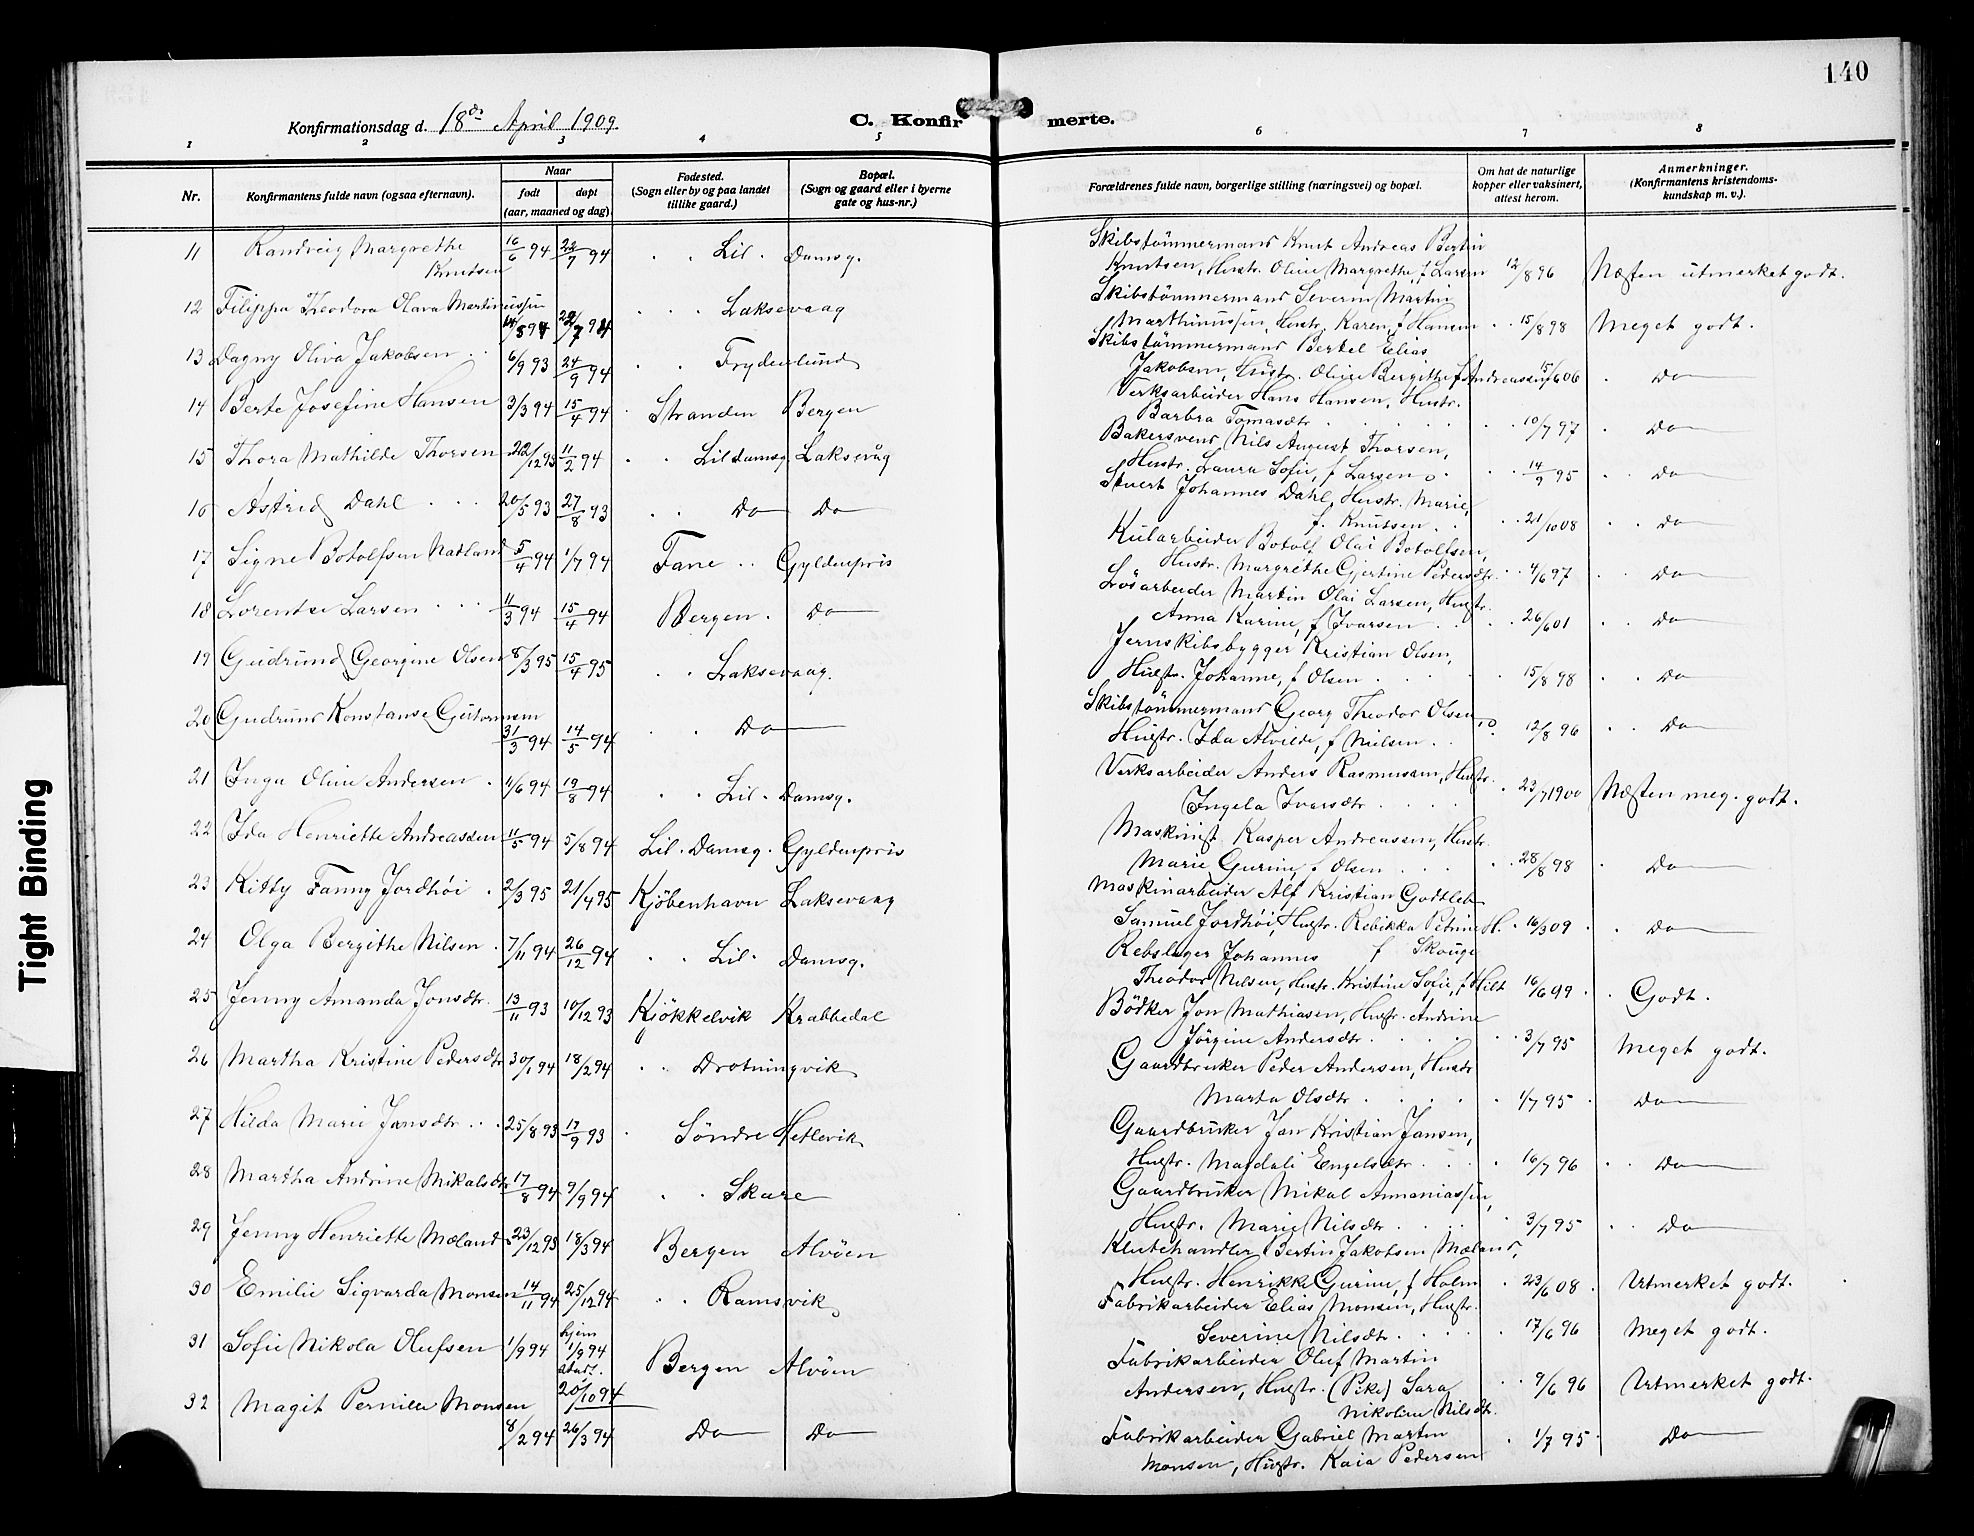 140
Konfirmationsdag d. 18de April 1909.
C. Konfirmerte.
1 2 3 4 5 6 7 8
Nr.
Konfirmantens fulde navn (ogsaa efternavn).
Naar
født
døpt
(aar, maaned og dag).
Fødested.
(Sogn eller by og paa landet
tillike gaard.)
Bopæl.
(Sogn og gaard eller i byerne
gate og hus-nr.)
Forældrenes fulde navn, borgerlige stilling (næringsvei) og bopæl.
Om hat de naturlige
kopper eller vaksinert,
attest herom.
Anmerkninger.
(Konfirmantens kristendoms-
kundskap m. v.).
11 Randveig Margrethe Knudsen 16/6 94 22/7 94 Lil. Damsg.
Skibstömmermand Knut Andreas Bertin
Knutsen, Hustr. Oline Margrethe, f Larsen 12/8 96 Næsten utmerket godt.
12 Filippa Theodora Olava Martinussen 14/5 94 22/7 94 Laksevaag
Skibstömmermand Severin Martin
Marthinussen, Hustr. Karen, f Hansen 15/8 98 Meget godt.
13 Dagny Oliva Jakobsen 6/9 93 24/9 94 Frydenlund
Skibstömmermand Bertel Elias
Jakobsen, Hustr. Oline Bergithe f Andreassen 15/6 06 Do
14 Berte Josefine Hansen 3/3 94 15/4 94 Stranden Bergen
Verksarbeider Hans Hansen, Hustr.
Barbra Tomasdtr 10/7 97 Do
15 Thora Mathilde Thorsen 22/12 93 11/2 94 Lil damsg. Laksevåg
Bakersvend Nils August Thorsen,
Hustr. Laura Sofie, f Larsen 14/9 95 Do
16 Astrid Dahl 20/5 93 27/8 93 Do Do
Stuert Johannes Dahl, Hustr. Marie,
f. Knutsen 21/10 08 Do
17 Signe Botolfsen Natland 5/4 94 1/7 94 Fane Gyldenpris
Kularbeider Botolf Olai Botolfsen,
Hustr. Margrethe Gjertine Pedersdtr. 4/6 97 Do
18 Lorentse Larsen 11/3 94 15/4 94 Bergen Do
Lösarbeider Martin Olai Larsen, Hustr.
Anna Karine, f Ivarsen 26/6 01 Do
19 Gudrund Georgine Olsen 8/3 95 15/4 95 Laksevaag.
Jernskibsbygger Kristian Olsen,
Hustr. Johanne, f Olsen 15/8 98 Do
20 Gudrund Konstanse Guttormsen 31/3 94 14/5 94 Do
Skibstömmermand Georg Theodor Olsen,
Hustr. Ida Alvilde, f Nielsen 12/8 96 Do
21 Inga Oline Andersen 11/6 94 19/8 94 Lil. Damsg.
Verksarbeider Anders Rasmussen, Hustr.
Ingela Ivarsdtr 23/7 1900 Næsten meg. godt.
22 Ida Henriette Andreassen 11/5 94 5/8 94 Lil. Damsg. Gyldenpris
Maskinist Kasper Andreassen, Hustr.
Marie Gurine, f Olsen 28/8 98 Do
23 Kitty Fanny Jordhöi 2/3 95 21/4 95 Kjöbenhavn Laksevaag
Maskinarbeider Alf Kristian Godtleb
Samuel Jordhöi, Hustr. Rebikka Petrine H. 16/3 09 Do
f Skouge
24 Olga Bergithe Nilsen 7/11 94 26/12 94 Lil. Damsg.
Rebslager Johannes
Theodor Nilsen, Hustr. Kristine Sofie, f Hilt 16/6 99 Godt.
25 Jenny Amanda Jonsdtr. 13/11 93 10/12 93 Kjökkelvik Krabbedal
Bödker Jon Mathiasen, Hustr. Andrine
Jörgine Andersdtr 3/7 95 Meget godt.
26 Martha Kristine Pedersdtr 30/1 94 18/2 94 Drotningvik
Gaardbruker Peder Andersen, Hustr
Marta Olsdtr 1/7 95 Do
27 Hilda Marie Jansdtr 25/8 93 17/9 93 Söndre Hetlevik
Gaardbruker Jan Kristian Jansen,
Hustr. Magdali Engelsdtr 16/7 96 Do
28 Martha Andrine Mikalsdtr 17/8 94 9/9 94 Skare
Gaardbruker Mikal Annaniassen,
Hustr. Marie Nilsdtr 3/7 95 Do
29 Jenny Henriette Mæland 23/12 93 18/3 94 Bergen Alvöen
Klutehandler Bertin Jakobsen Mæland,
Hustr. Henrikke Gurine, f Holm 23/6 08 Utmerket godt.
30 Emilie Sigvarda Monsen 14/11 94 25/12 94 Ramsvik
Fabrikarbeider Elias Monsen, Hustr.
Severine Nilsdtr 17/6 96 Meget godt.
31 Sofie Nikola Olufsen 1/9 94 hjem 1/9 94 stadf. 20/10 94 Bergen Alvöen
Fabrikarbeider Oluf Martin
Andersen, Hustr. (Pike) Sara
Nikoline Nilsdtr. 9/6 96 Utmerket godt.
32 Magit Pernille Monsen 8/2 94 26/3 94 Do Do
Fabrikarbeider Gabriel Martin
Monsen, Hustr. Kaia Pedersen 1/7 95 Do
Tight Binding